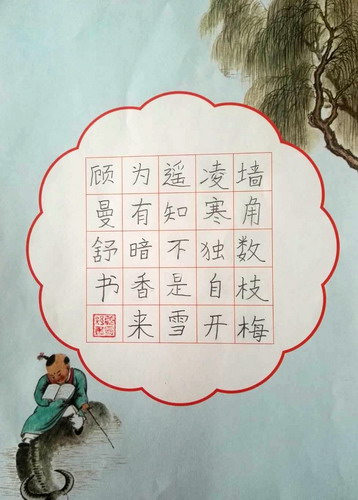 墙角数枝梅
凌寒独自开
遥知不是雪
为有暗香来
顾曼舒书